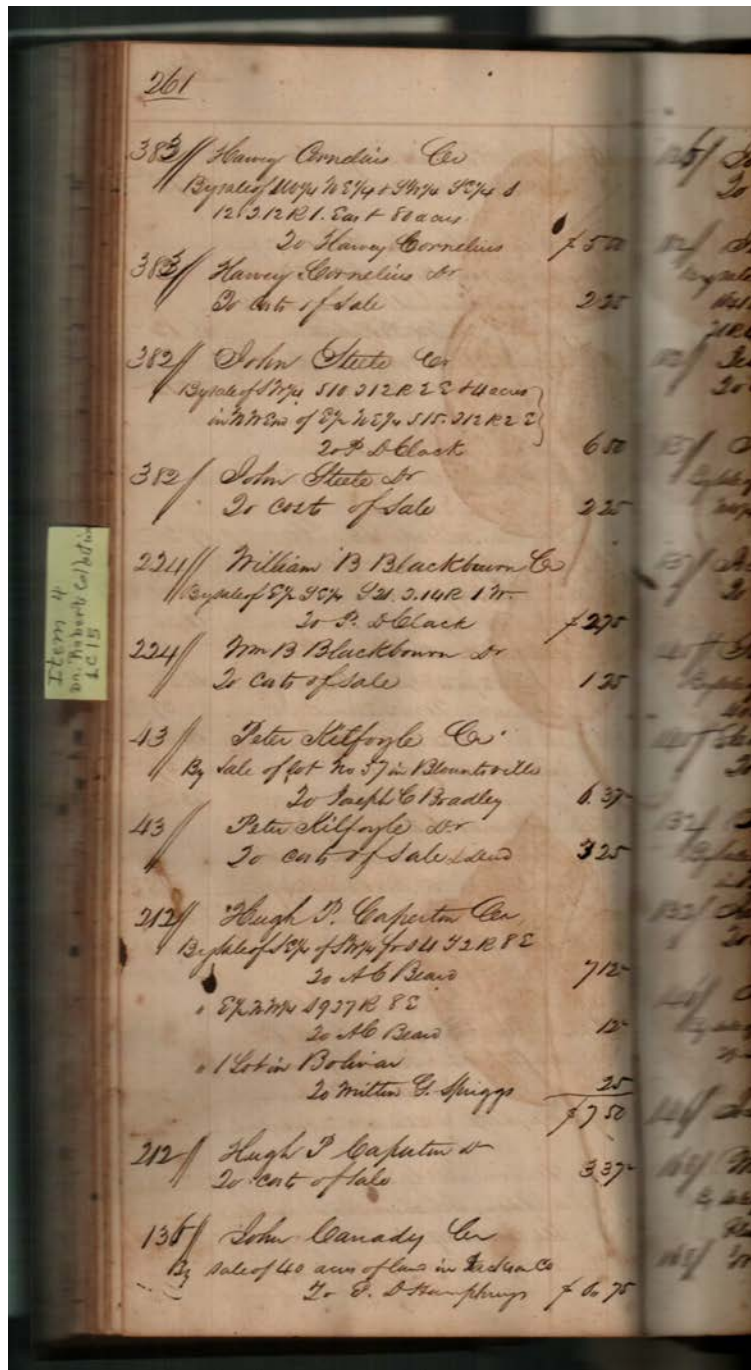 261
383 Harvey Cornelius Cr
By sale of NW¼ NE¼ & SW¼ SE¼ S
12. T12 R1. East 80 acres
To Harvey Cornelius $5 00
383 Harvey Cornelius Dr
To costs of Sale 2 25
382 John Steele Cr
By sale of SW¼ S10 T12 R2E & 4 acres
in NW End of E½ NE¼ S15. T12 R2E
To P. D Clack 6 50
382 John Steele Dr
To cost of Sale 2 25
224 William B Blackburn Cr
By sale of E½ SE¼ S21. T.14 R1W
To P. D Clack $2 75
224 Wm B Blackbourn Dr
To costs of Sale 1 25
43 Peter Kilfoyle Cr
By Sale of Lot No 37 in Blountsville
To Joseph C Bradley 6.37
43 Peter Kilfoyle Dr
To costs of Sale 3 25
212 Hugh P. Caperton Cr
By sale of of SW¼ R 8E
To A C Beard 7 12
" E½ NW¼ R 8E
To A C Beard 12
" 1 Lot in Bolivar
To Milton G. Spriggs 25
$7 50
212 Hugh P Caperton Dr
To cost of Sale 3.37
136 John Canady Cr
By sale of 40 acres of land in Jackson Co
To D Humphreys $6.75
Item 4
Dr. Roberts Collection
LC 15